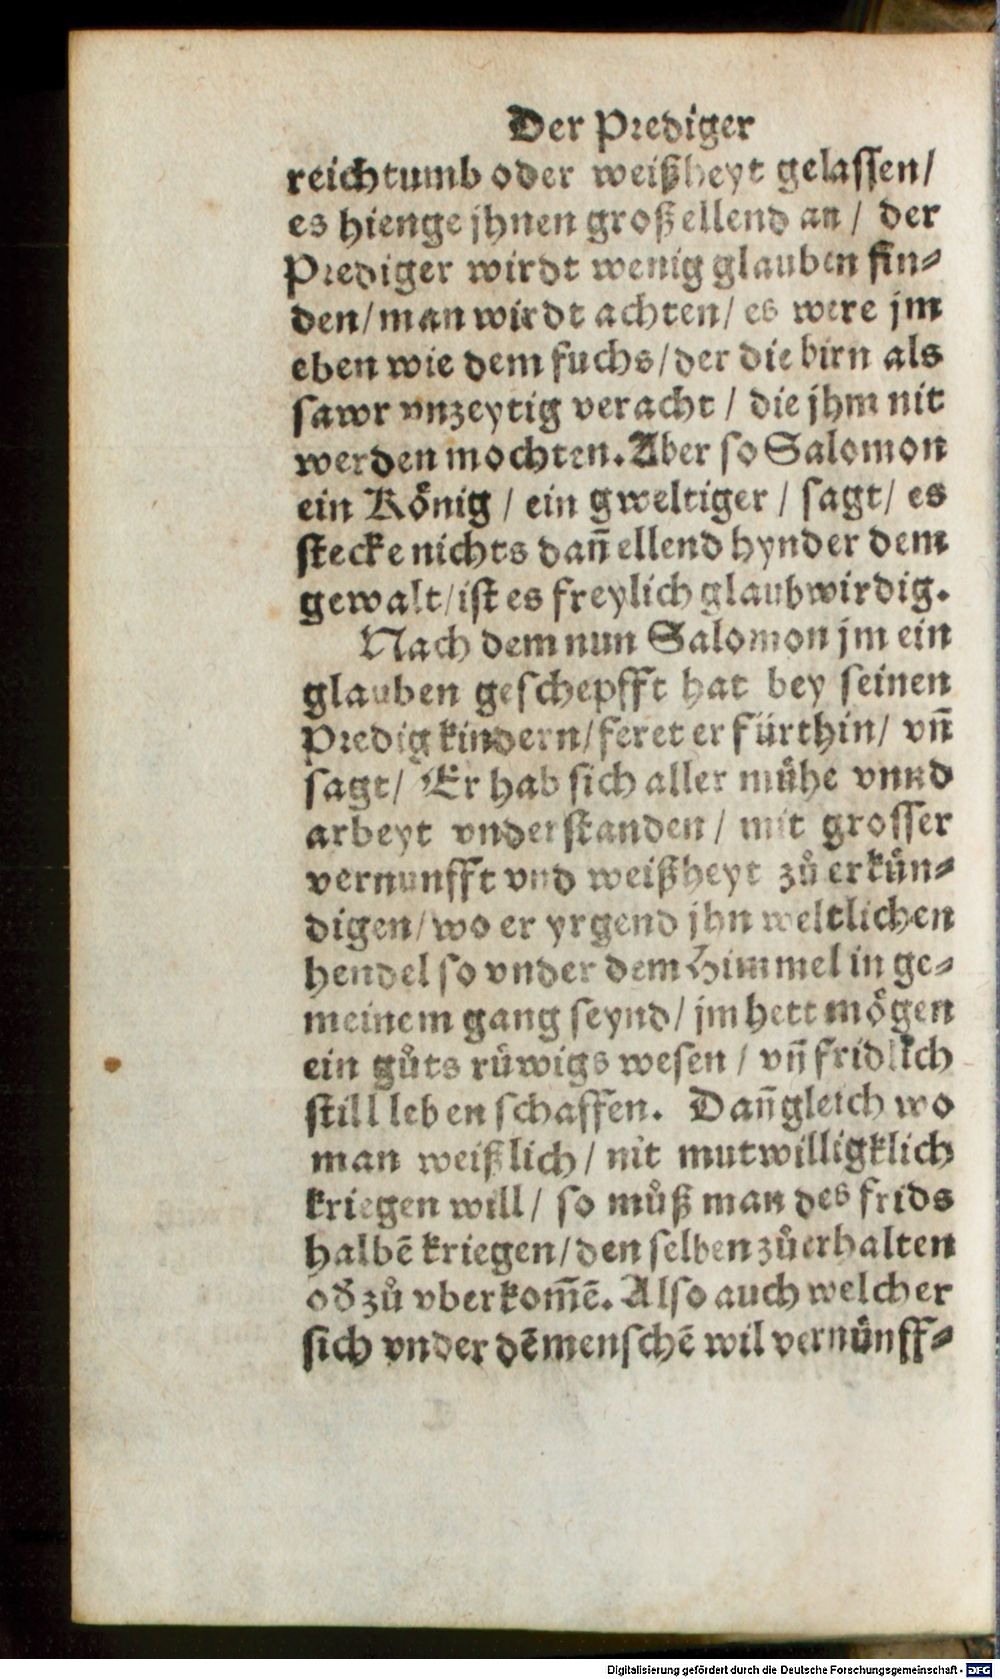 Der Prediger
reichtumb oder weißheyt gelassen/
es hienge jhnen groß ellend an / der
Prediger wirdt wenig glauben fin⸗
den/ man wirdt achten/ es were jm
eben wie dem fuchs/ der die birn als
sawr vnzeytig veracht / die jhm nit
werden mochten. Aber so Salomon
ein Koͤnig / ein gweltiger / sagt/ es
stecke nichts dañ ellend hynder dem
gewalt/ ist es freylich glaubwirdig.
Nach dem nun Salomon jm ein
glauben geschepfft hat bey seinen
Predig kindern/ feret er fürthin/ vñ
sagt/ Er hab sich aller muͤhe vnnd
arbeyt vnderstanden / mit grosser
vernunfft vnd weißheyt zuͦ erkün⸗
digen/ wo er yrgend jhn weltlichen
hendel so vnder dem Himmel in ge⸗
meinem gang seynd/ jm hett moͤgen
ein guͦts rüwigs wesen / vñ fridlich
still leben schaffen. Dañ gleich wo
man weißlich/ nit mutwilligklich
kriegen will/ so muͦß man des frids
halbẽ kriegen/ den selben zuͦ erhalten
oð zuͦ vberkom̃ẽ. Also auch welcher
sich vnder dẽ menschẽ wil vernünff⸗
Digitalisierung gefördert durch die Deutsche Forschungsgemeinschaft - DFG